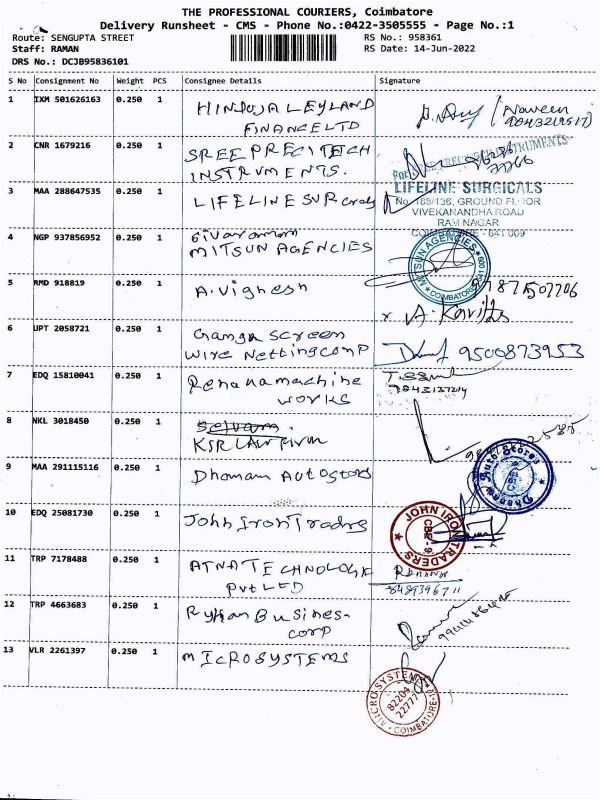 THE PROFESSIONAL COURIERS, Coimbatore
Delivery Runsheet - CMS - Phone No.:0422-3505555 - Page No.:1
Route: SENGUPTA STREET RS No.: 958361
Staff: RAMAN RS Date: 14-Jun-2022
DRS No.: DCJB95836101
S No Consignment No Weight PCS Consignee Details Signature
1 IXM 501626163 0.250 1 HINDUJA LEYLAND (Naveen
FINANCE LTD
2 CNR 1679216 0.250 1 SREE PRECITECH
INSTRUMENTS.
3 MAA 288647535 0.250 1 LIFELINE SURgicals LIFELINE SURGICALS
No. 189/136, GROUND FLOOR
VIVEKANANDHA ROAD
RAM NAGAR
COIMBATORE - 641 009
4 NGP 937856952 0.250 1 Sivaramam
MITSUN AGENCIES MITSUN AGENCIES COIMBATORE 641 009
5 RMD 918819 0.250 1 A. Vignesh
A. Kavitha
6 UPT 2058721 0.250 1 Ganga screen
wire netting comp 9500873953
7 EDQ 15810041 0.250 1 Renana machine
works
8 NKL 3018450 0.250 1 Selvam
KSR LAW FIRM
9 MAA 291115116 0.250 1 Dhanam Auto stors
10 EDQ 25081730 0.250 1 John Iron Trading JOHN IRON TRADERS CBE-9
11 TRP 7178488 0.250 1 ATNA TECHNOLOGIE
Pvt LTD 8489396711
12 TRP 4663683 0.250 1 Ryhan Business-
corp
13 VLR 2261397 0.250 1 MICROSYSTEMS
MICRO SYSTEM 82204 22777 COIMBATORE